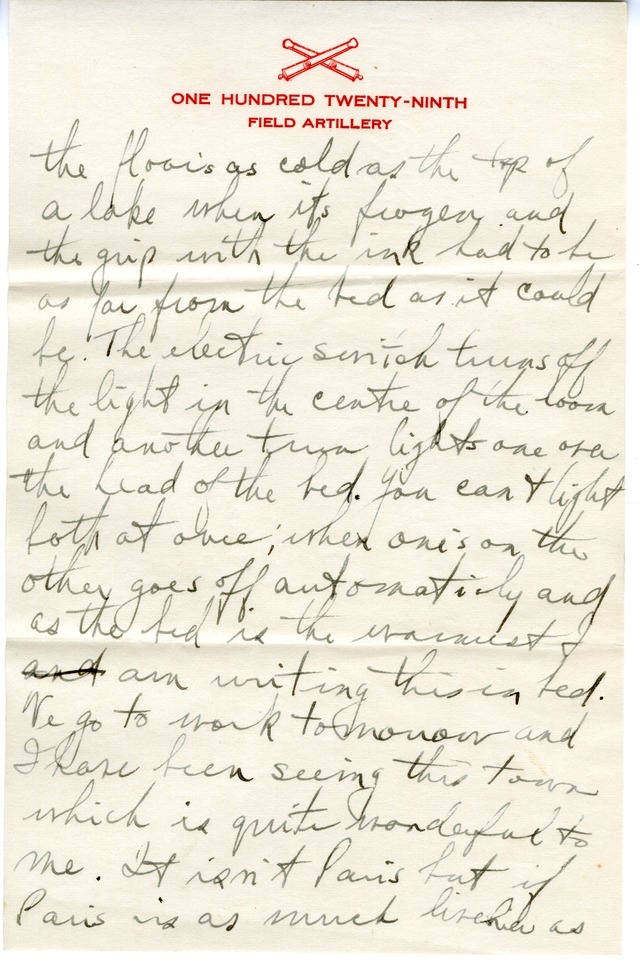 ONE HUNDRED TWENTY-NINTH
FIELD ARTILLERY
the floor is as cold as the top of
a lake when its frozen and
the grip with the ink had to be
as far from the bed as it could
be. The electric switch turns off
the light in the centre of the room
and another turn lights one over
the head of the bed. You can't light
both at once; when one is on the
other goes off automaticly and
as the bed is the warmest I
and am writing this in bed.
We go to work tomorrow and
I have been seeing this town
which is quite wonderful to
me. It isn't Paris but if
Paris is as much livelier as